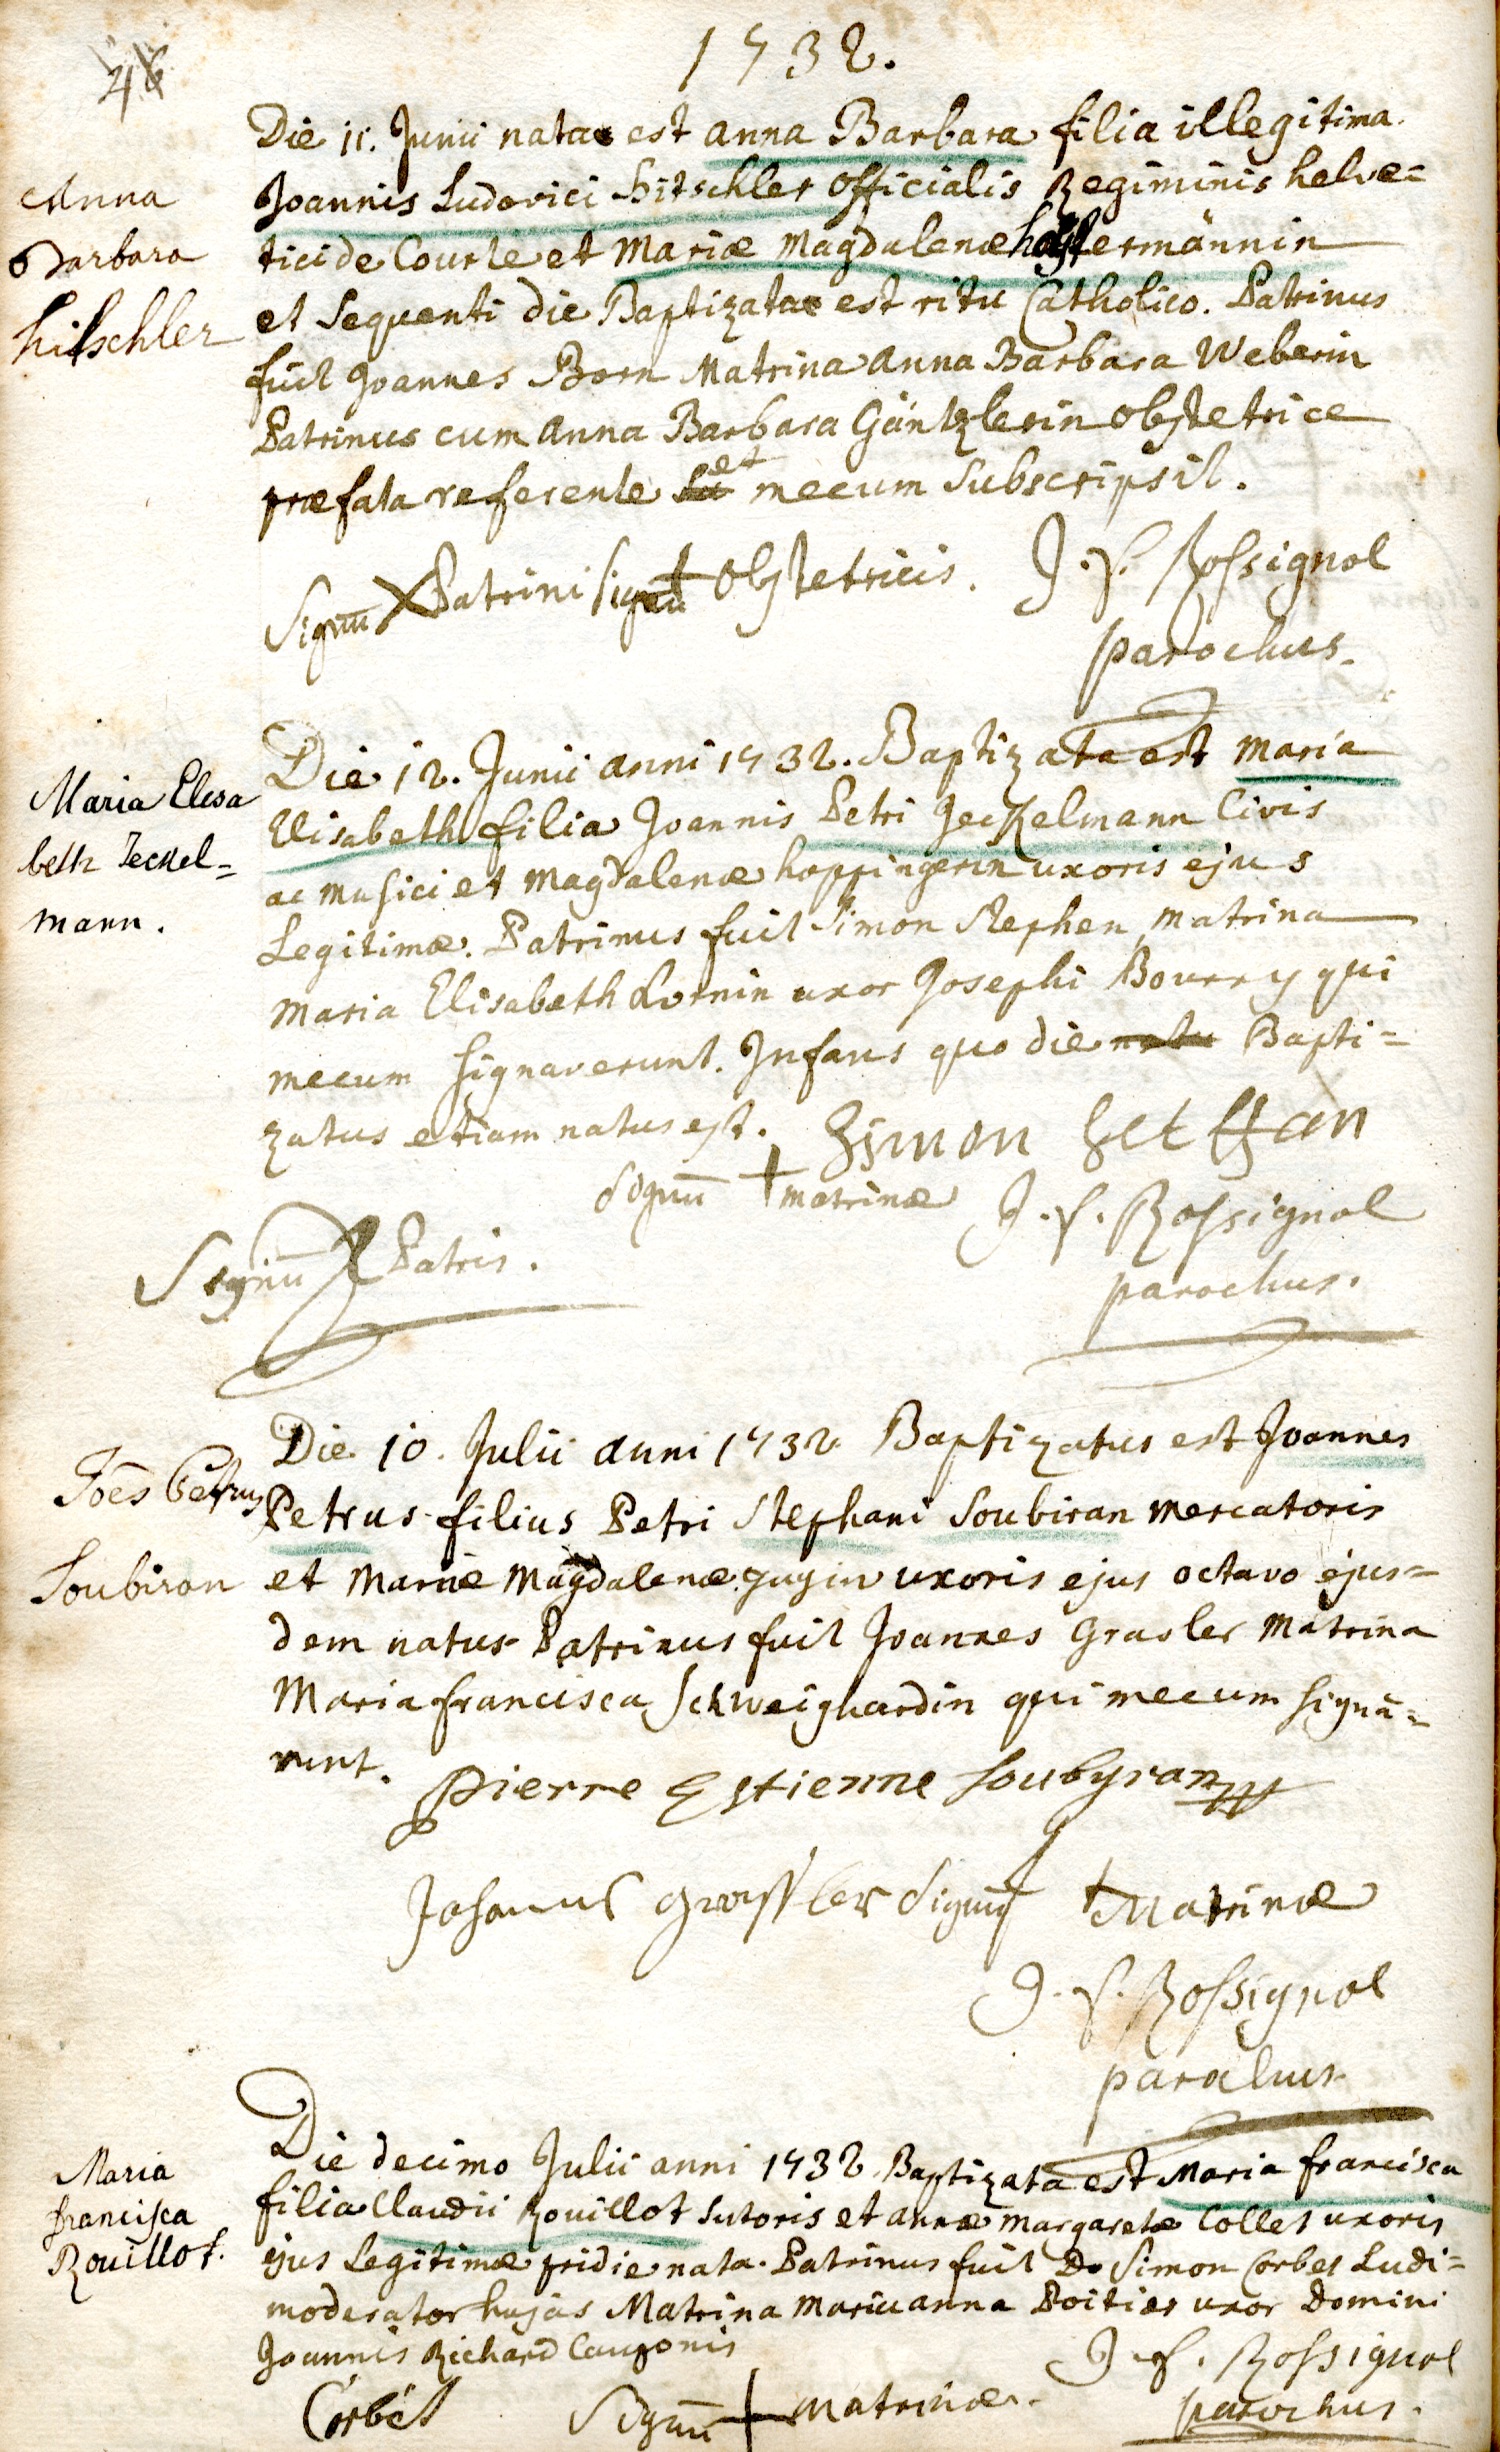 1732.
46
Die 11. Junii nata est anna Barbara filia illegitima
Anna
Barbara
hitschler
Joannis Ludovici hitschler officialis Regiminis helve=
tici de Courte et Mariæ Magdalenæ
et sequenti die Baptizata est ritu Catholico. Patrinus
fuit Joannes Born Matrina anna Barbara Weberin
Patrinus cum anna Barbara Gäntzlerin obstetrice
præfata referente et mecum subscripsit.
Signū X Patrini signū † obstetricis. J. f. Rossignol
parochus.
Maria Elisa
beth Jeckel=
mann.
Die 12. Junii anni 1732. Baptizata est maria
Elisabeth filia Joannis Petri Jeckelmann Civis
ac musici et magdalenæ hoppingerin uxoris ejus
Legitimæ. Patrinus fuit Simon Stephen matrina
maria Elisabeth Lornin uxor Josephi Bourry qui
mecum signaverunt. Infans quo die natu Bapti=
zatus etiam natus est. Simon
signū † matrinæ J. f. Rossignol
Signū Patris.
parochus.
Joēs Petrus
Soubiran
Die 10. Julii anni 1732 Baptizatus est Joannes
Petrus filius Petri Stephani Soubiran mercatoris
et Mariæ Magdalenæ gugin uxoris ejus octavo ejus=
dem natus Patrinus fuit Joannes Grasler Matrina
Maria francisca Schweighardin qui mecum signa=
runt.
Pierre Estienne Soubyran
Johannes grassler Signū † Matrinæ
J. f. Rossignol
parochus
Maria
francisca
Rouillot.
Die decimo Julii anni 1732 Baptizata est Maria francisca
filia Claudii Rouillot sutoris et annæ margaretæ Collet uxoris
ejus Legitimæ pridie nata. Patrinus fuit D. Simon Corbet Ludi=
moderator hujas Matrina Mariaanna Poitier uxor Domini
Joannis Richard Cauponis
J. f. Rossignol
Corbet Signū † matrinæ. parochus.